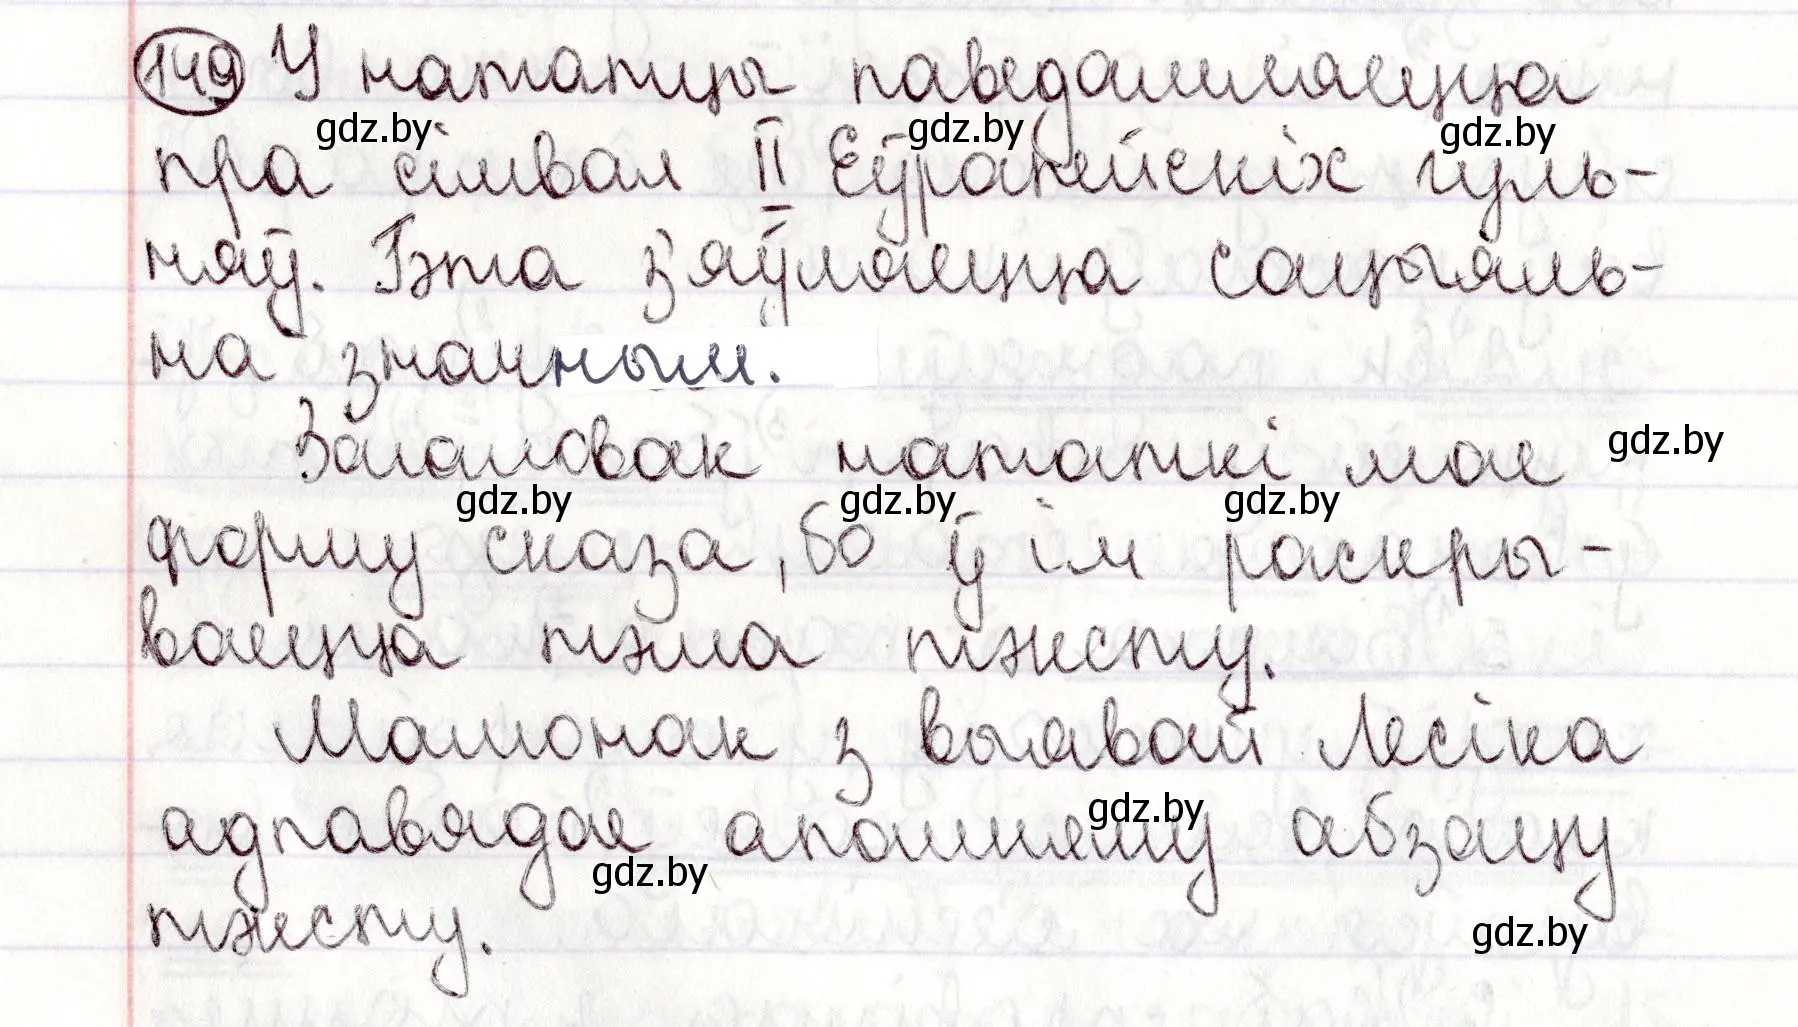 149 У нататцы паведамляецца
gdz.by gdz.by gdz.by
пра сімвал II Еўрапейскіх гуль-
няў. Гэта з'яўляецца сацыяль-
на значным.
Загаловак нататкі мае
gdz.by
gdz.by gdz.by gdz.by
форму сказа, бо ў ім раскры-
ваецца тэма тэксту.
Малюнак з выявай Лесіка
gdz.by
адпавядае апошняму абзацу
gdz.by
тэксту.
gdz.by